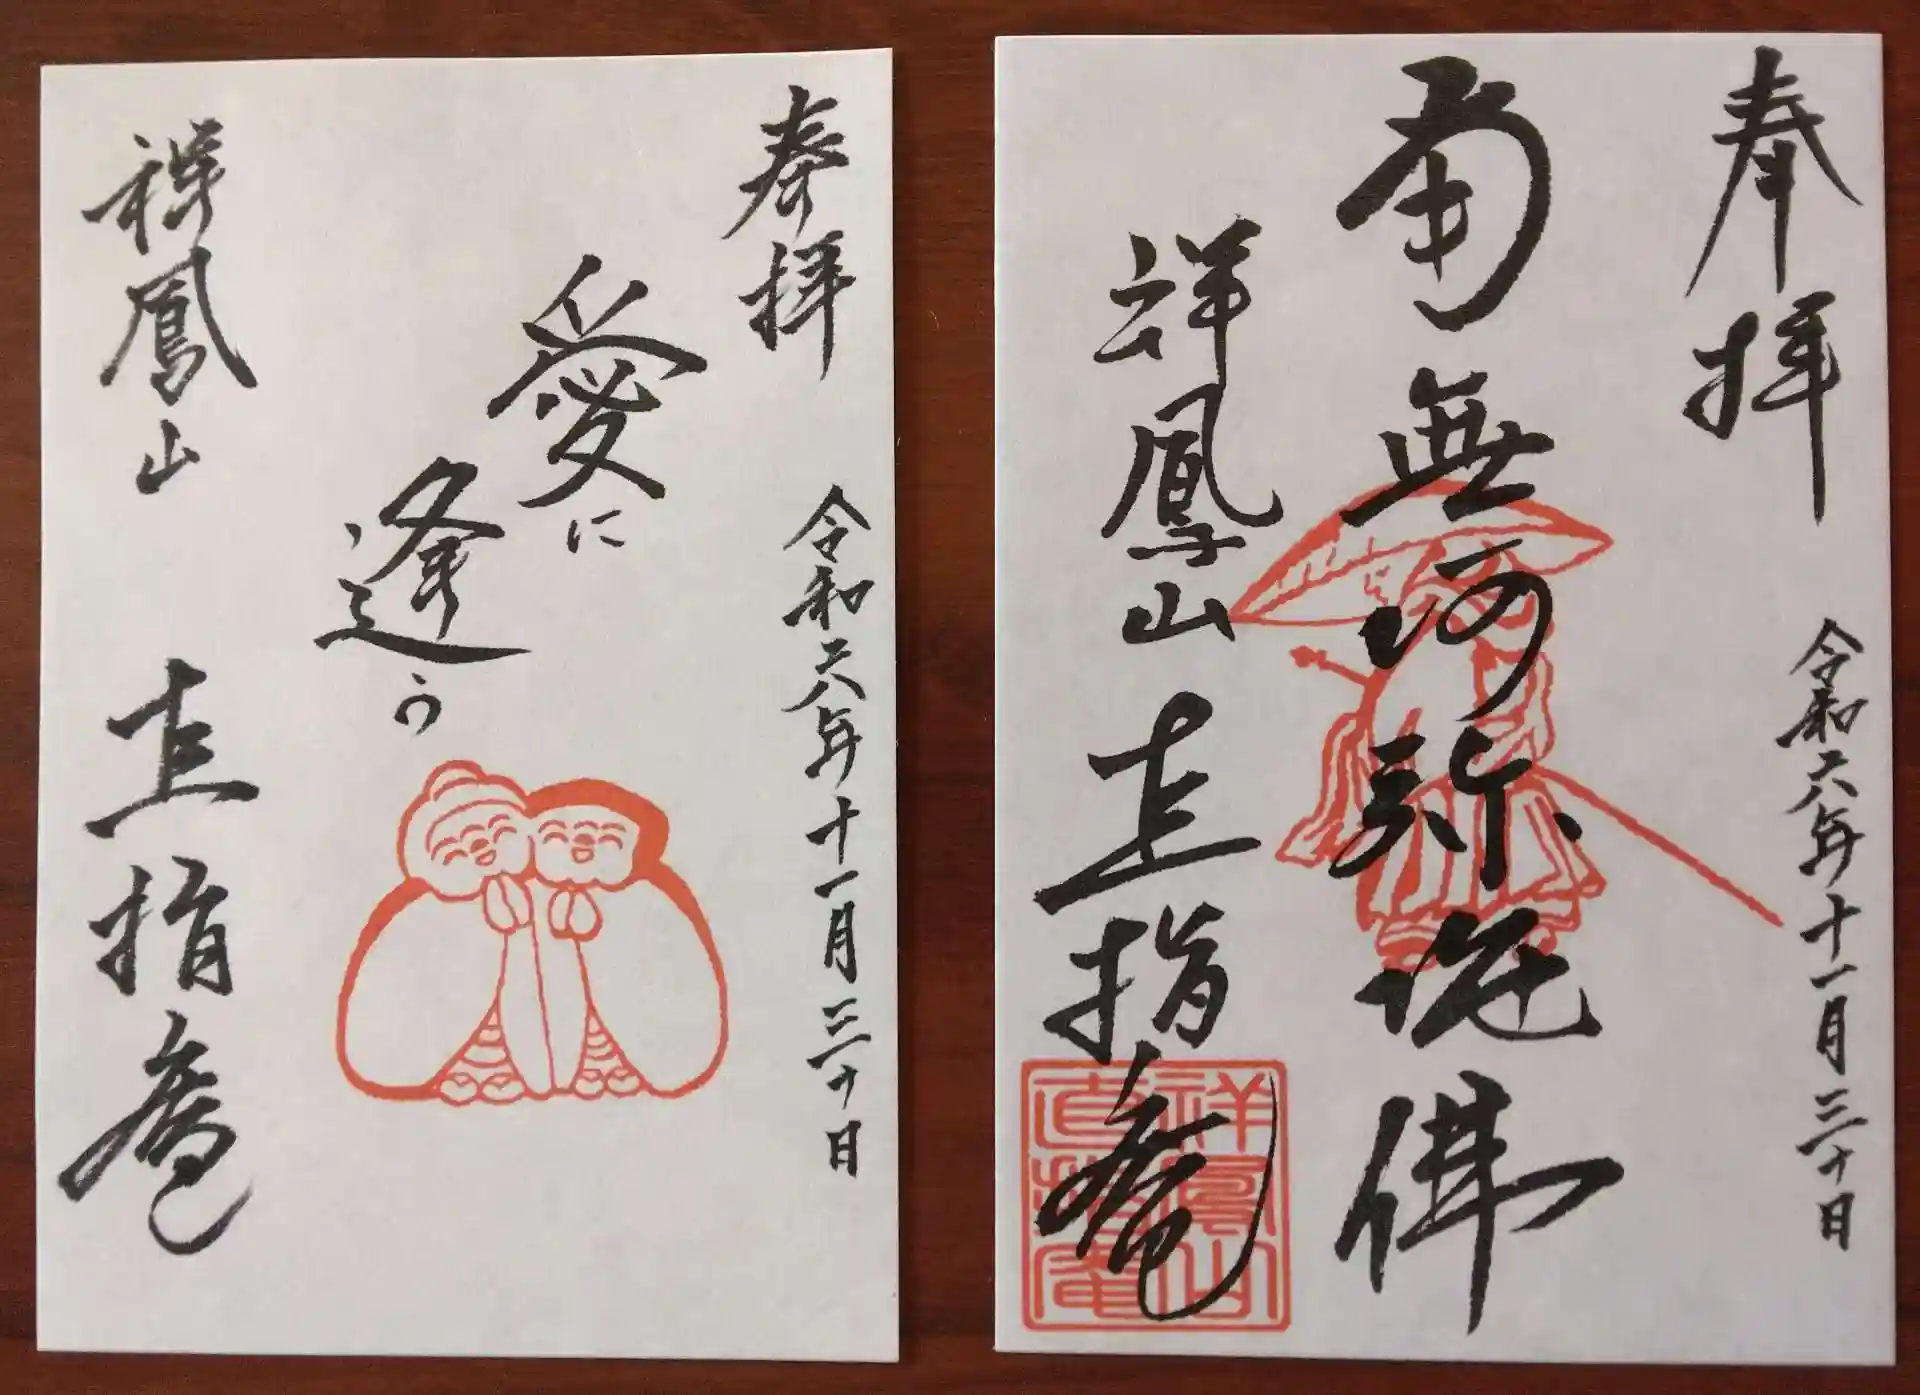 奉拝
令和六年十一月三十日
愛に
逢う
祥鳳山 直指庵
奉拝
令和六年十一月三十日
南無阿弥陀佛
祥鳳山 直指庵
祥鳳山
直指庵